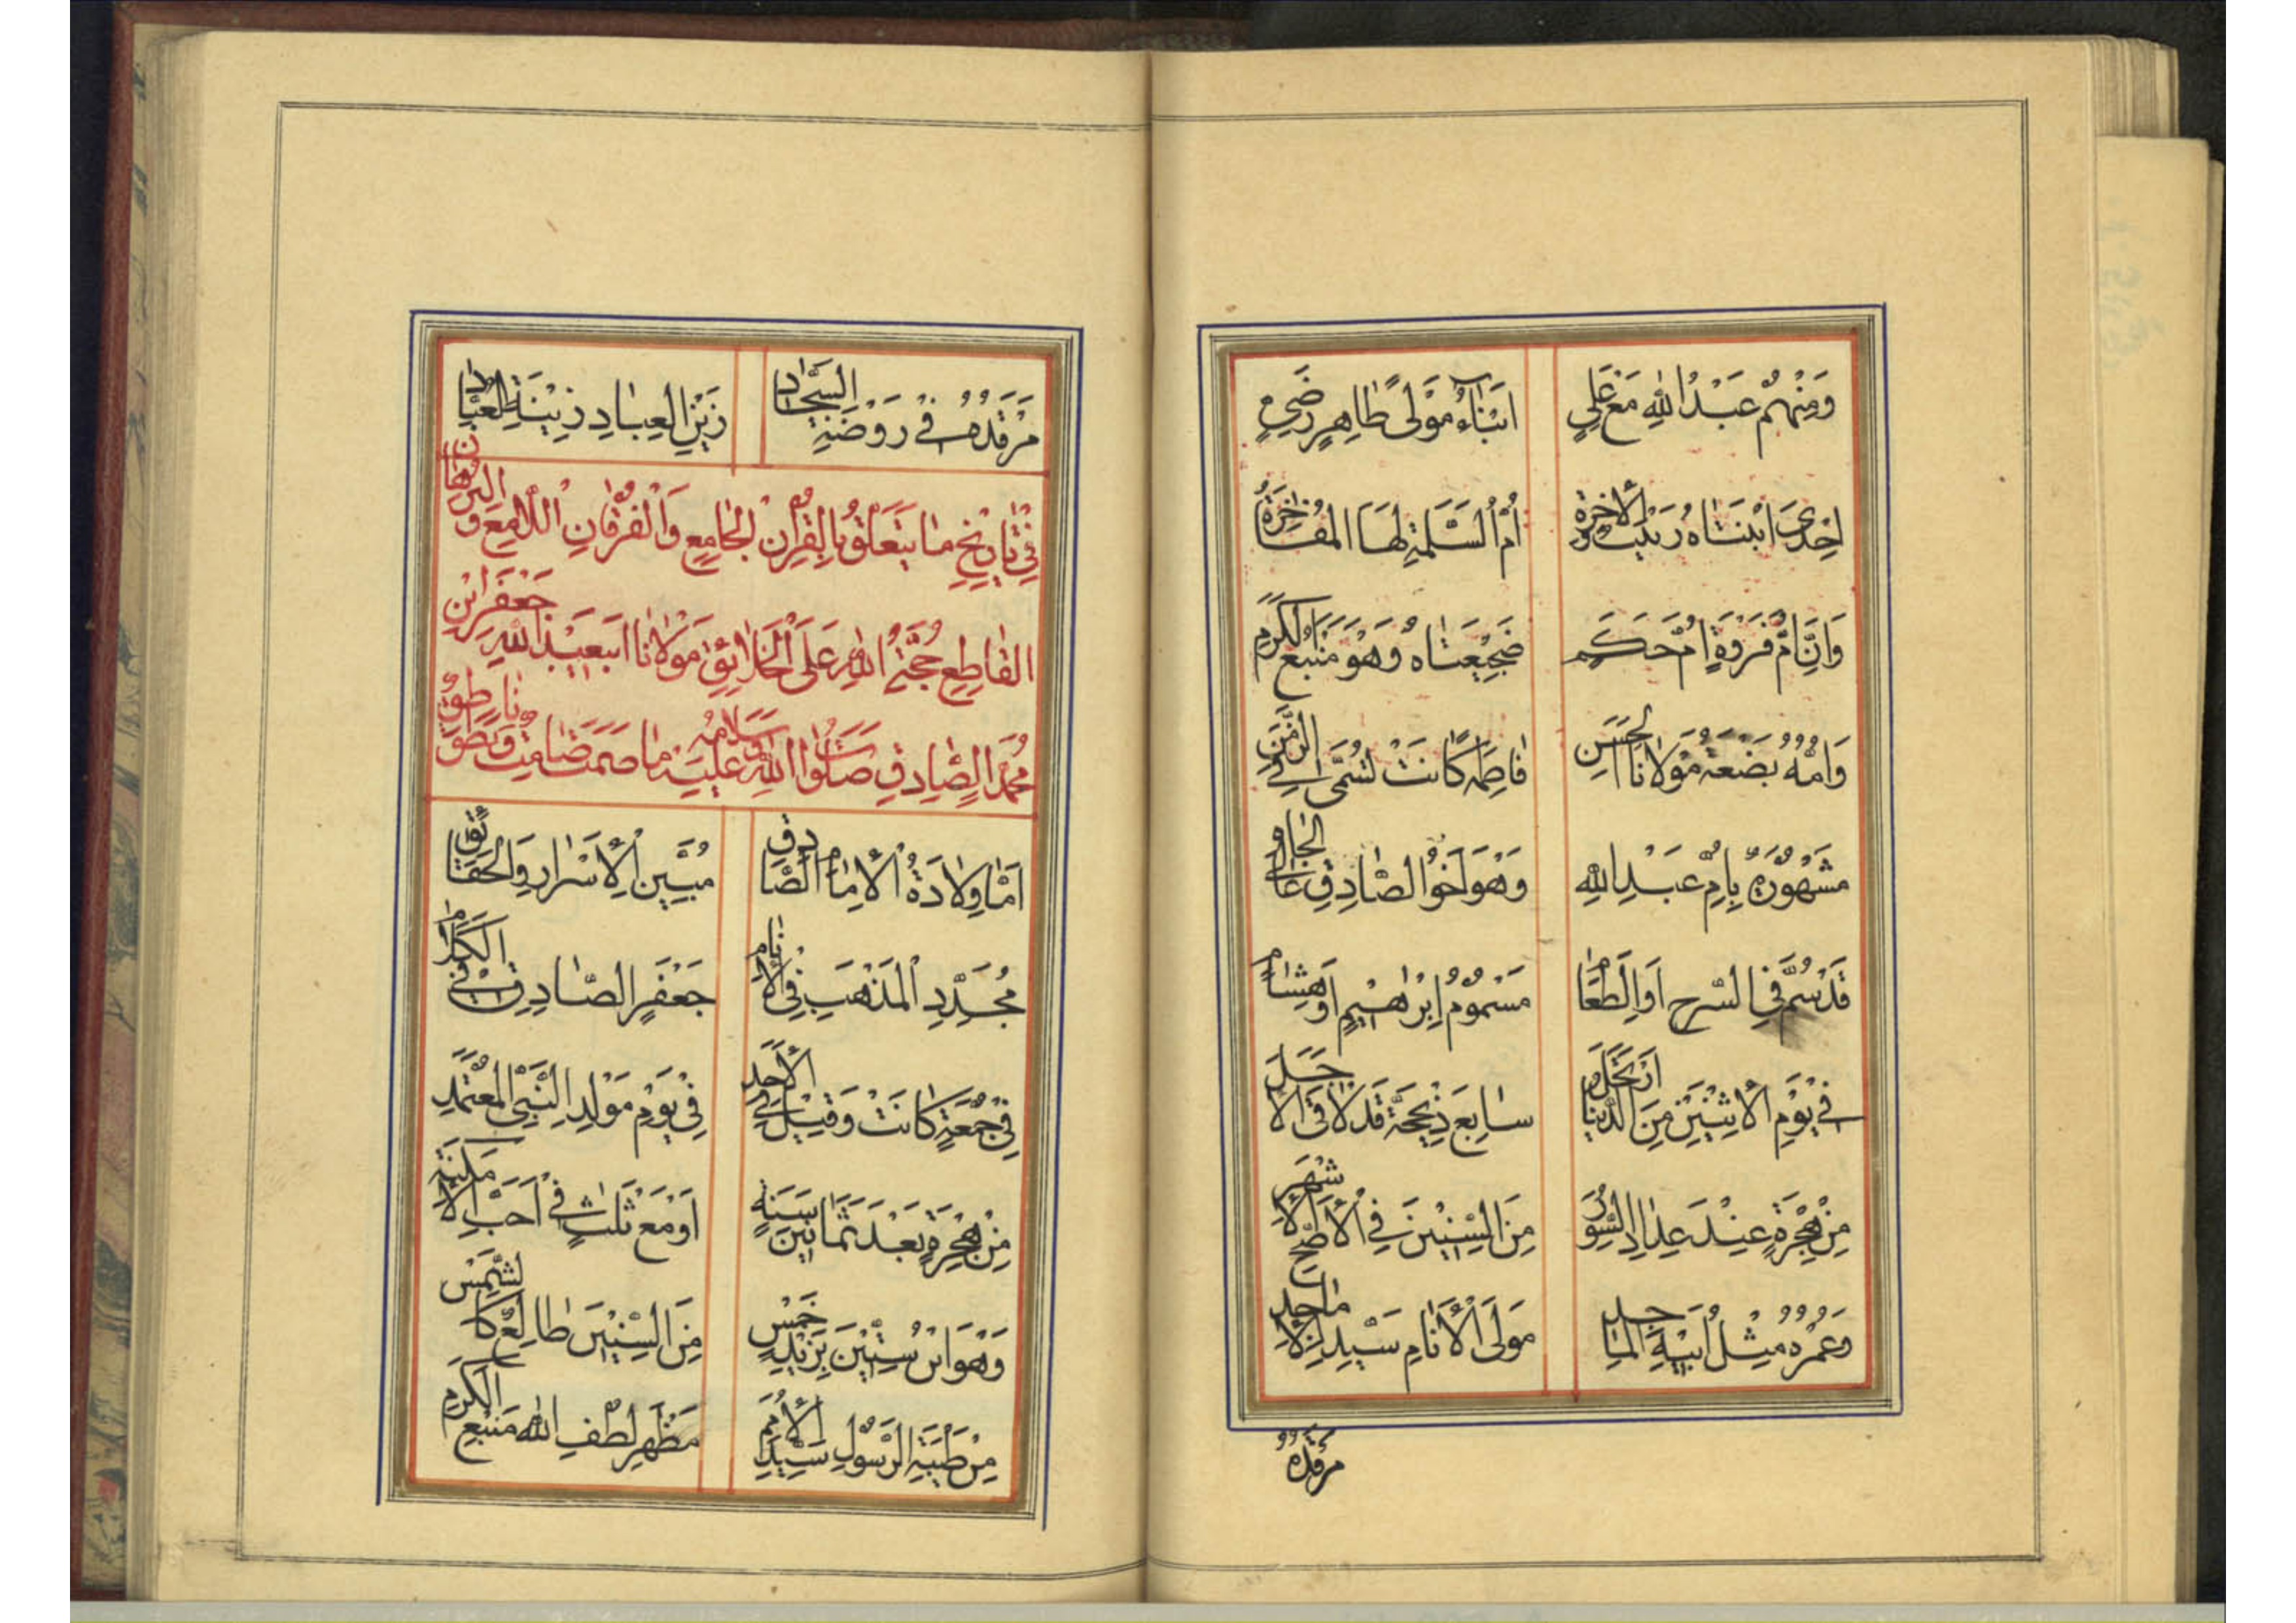 وَمِنْهُمُ عَبْدُ اللهِ مَعْ عَلِيٍ
اَبْنَاءُ مَوْلىً طَاهِرٍ رَضِيٍ
اِحْدَى ابْنَتَاهُ زَيْنَبُ وَالْاُخْرَةُ
اُمُّ السَّلَمَةِ لَهَا الْمُفَاخِرَةُ
وَاِنَّ اُمَّ فَرْوَةٍ اُمَّ حَكِيم
ضَجِيْعَتَاهُ وَهُوَ مَنْبَعُ الْكَرَمِ
وَاُمُّهُ بَضْعَةُ مَوْلَانَا الْحَسَنِ
فَاطِمَه كَانَتْ تُسَمَّى فِي الزَّمَنِ
مَشْهُورَةٌ بِاُمِّ عَبْدِ اللهِ
وَهُوَ اَخُو الصَّادِقِ عَالِي الْجَاهِ
قَدْ سُمَّ فِي السَّرْجِ اَوِ الطَّعَامِ
مَسْمُومُ اِبْرَاهِيْمٍ اَوْ هِشَامِ
فِي يَوْمِ الْاِثْنَيْنِ مِنَ الدُّنْيَا ارْتَحَلَ
سَابِعَ ذِيْحَجَّةَ قَدْ لَاقَى الْاَجَلَ
مِنْ هِجْرَةٍ عِنْدَ عِدَادِ السُّوَرِ
مِنَ السِّنِيْنَ فِي الْاَصَحِّ الْاَشْهَرِ
وَعُمْرُهُ مِثْلُ اَبِيْهِ الْمَاجِدِ
مَوْلَى الْاَنَامِ سَيِّدِ الْاَمَاجِدِ
مَرْقَدُهُ
مَرْقَدُهُ فِي رَوْضَةِ السَّجَّادِ
زَيْنِ الْعِبَادِ زِيْنَةِ الْعُبَّادِ
فِي تَارِيْخِ مَا يَتَعَلَّقُ بِالْقُرْاٰنِ الْجَامِعِ وَالْفُرْقَانِ اللَّامِعِ وَ الْبُرْهَانِ
الْقَاطِعِ حُجَّةِ اللهِ عَلَى الْخَلَائِقِ مَوْلَانَا ابيعَبْدِ اللهِ جَعْفَرِ ابْنِ
مُحَمَّدٍ الصَّادِقِ صَلَوَاتُ اللهِ وَسَلَامُهُ عَلَيْهِ مَا صَمَتَ صَامِتٌ وَنَطَقَ نَاطِقٌ
اَمَّا وِلَادَةُ الْاِمَامِ الصَّادِقِ
مُبَيِّنِ الْاَسْرَارِ وَالْحَقَائِقِ
مُجَدِّدِ الْمَذْهَبِ فِي الْاَنَامِ
جَعْفَرٍ الصَّادِقِ فِي الْكَلَامِ
فِي جُمْعَةٍ كَانَتْ وَقِيْلَ فِي الْاَحَدِ
فِي يَوْمِ مَوْلِدِ النَّبِيِّ الْمُعْتَمَدِ
مِنْ هِجْرَةٍ بَعْدَ ثَمَانِيْنَ سَنَةٍ
اَوْ مَعْ ثَلَاثٍ فِي اَحَبِّ الْاَمْكِنَةِ
وَهُوَ ابْنُ سِتِّيْنَ بِزَيْدِ خَمْسٍ
مِنَ السِّنِيْنَ طَالِعٌ كَالشَّمْسِ
مِنْ طَيْبَةِ الرَّسُوْلِ سَيِّدِ الْاُمَمِ
مَظْهَرِ لُطْفِ اللهِ مَنْبَعِ الْكَرَمِ